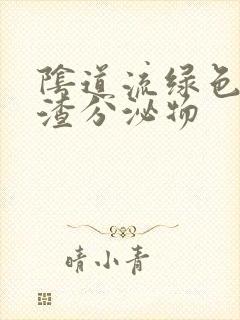 陰道流绿色
渣分泌物
晴小青